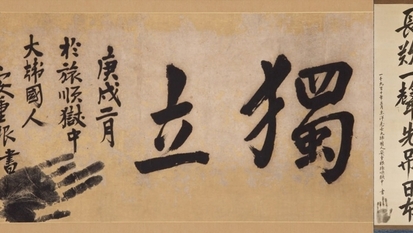 獨立
庚戌二月
於旅順獄中
大韓國人
安重根書
長歎一聲先弔日本